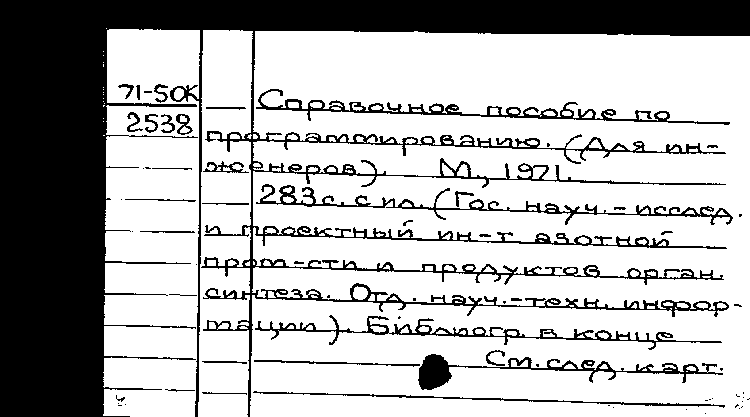 71-50К
2538
Справочное пособие по
программированию. (Для ин-
женеров). М., 1971.
283с. с ил. (Гос. науч.-исслед.
и проектный ин-т азотной
пром-сти и продуктов орган.
синтеза. Отд. науч.-техн. инфор-
мации). Библиогр. в конце
См. след. карт.